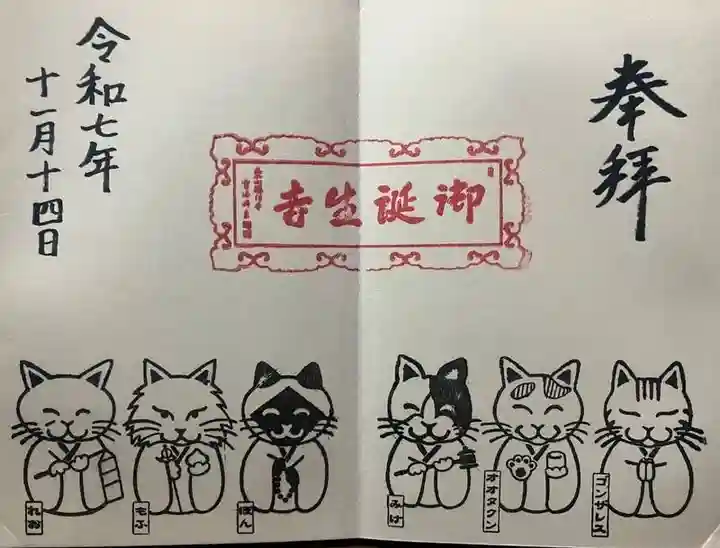 奉拝
御誕生寺
令和七年
十一月十四日
れお
もふ
ぽん
みけ
オオタクン
ゴンザレス